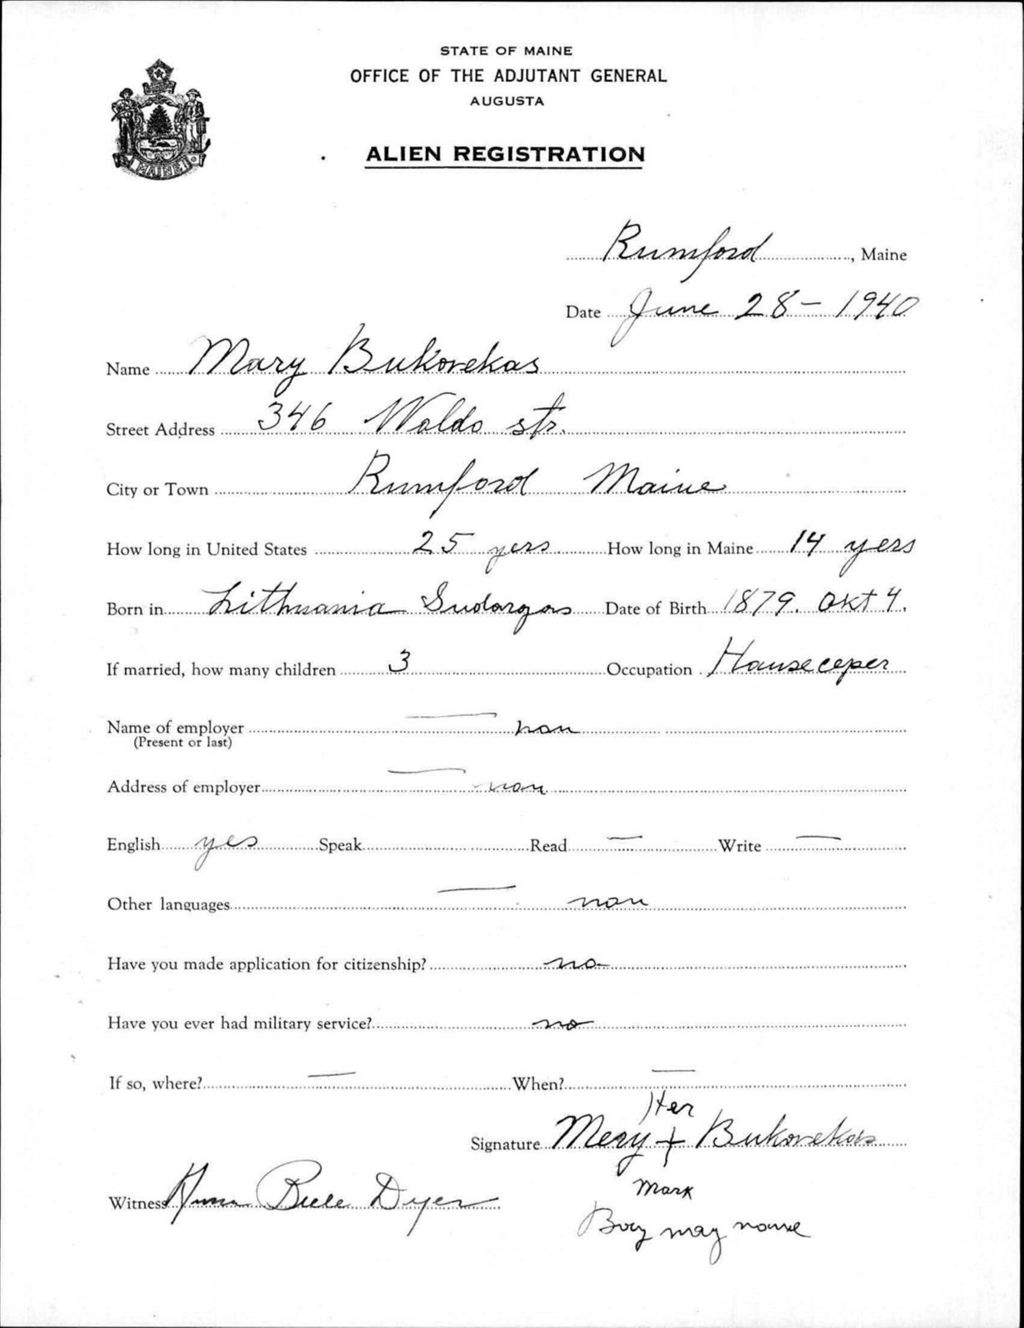 STATE OF MAINE
OFFICE OF THE ADJUTANT GENERAL
AUGUSTA
ALIEN REGISTRATION
Rumford, Maine
Date June 28 - 1940
Name Mary Bukovekas
Street Address 346 Waldo str.
City or Town Rumford Maine
How long in United States 25 yers How long in Maine 14 yers
Born in Lithuania Sudargas Date of Birth 1879. Okt 4.
If married, how many children 3 Occupation Hauseceper
Name of employer — non
(Present or last)
Address of employer — non
English yes Speak Read — Write —
Other languages — non
Have you made application for citizenship? no
Have you ever had military service? no
If so, where? — When? —
Her
Signature Mery + Bukovekas
Mark
Witness Anna Belle Dyer
may